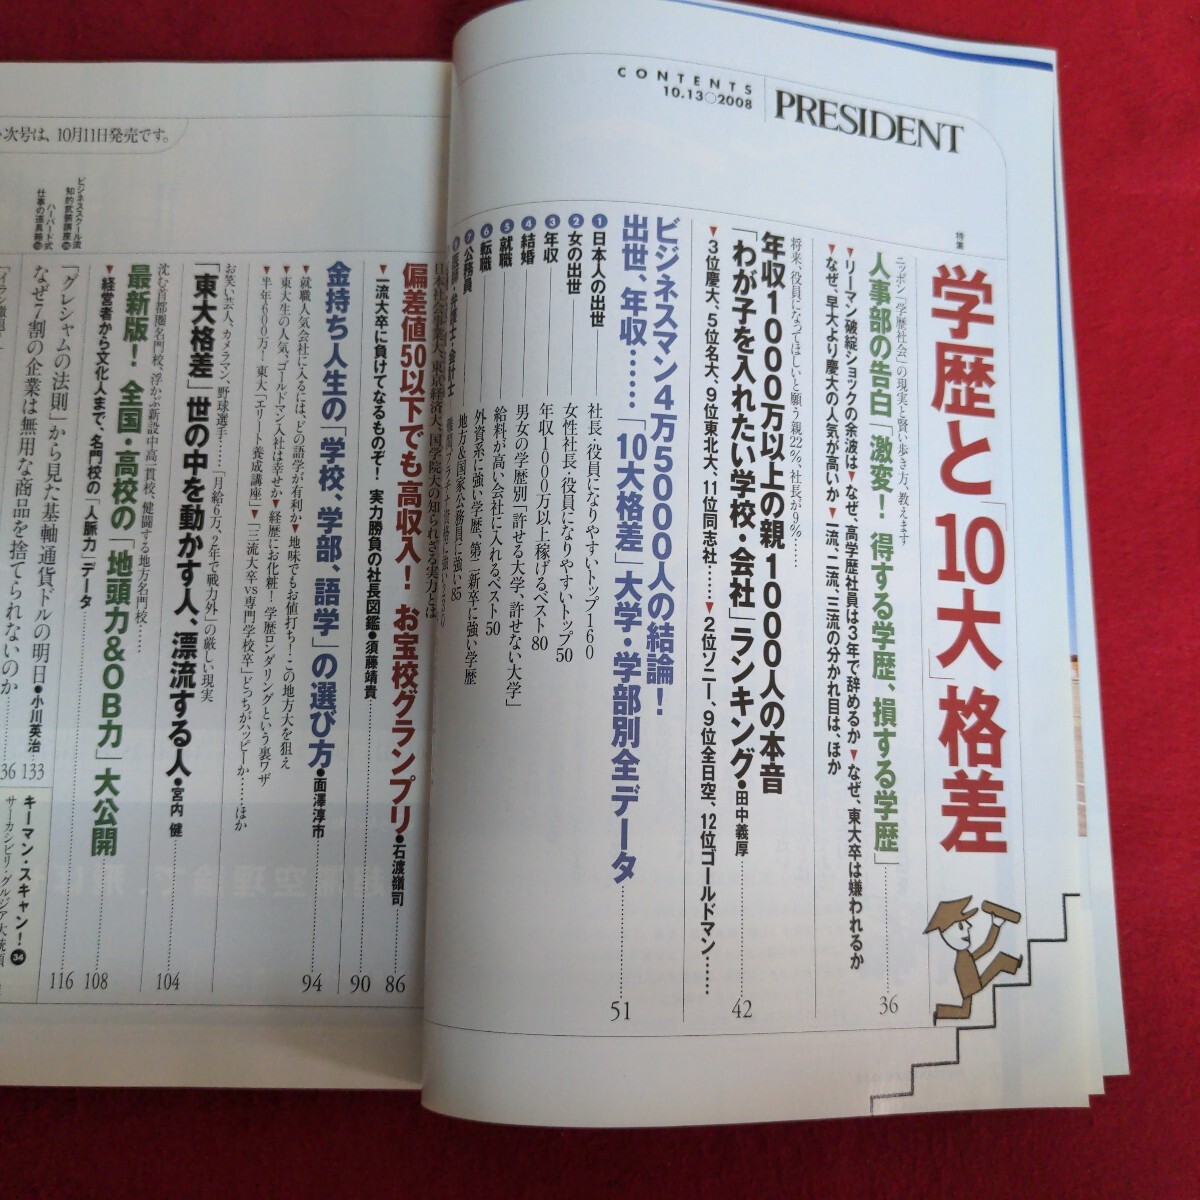 CONTENTS
10.13○2008
PRESIDENT
特集
学歴と「10大」格差
ニッポン「学歴社会」の現実と賢い歩き方、教えます
人事部の告白「激変！ 得する学歴、損する学歴」
36
▼リーマン破綻ショックの余波は▼なぜ、高学歴社員は3年で辞めるか▼なぜ、東大卒は嫌われるか
▼なぜ、早大より慶大の人気が高いか▼一流、二流、三流の分かれ目は、ほか
将来、役員になってほしいと願う親22%、社長が9%……
年収1000万以上の親1000人の本音
「わが子を入れたい学校・会社」ランキング●田中義厚
42
▼3位慶大、5位名大、9位東北大、11位同志社……▼2位ソニー、9位全日空、12位ゴールドマン……
ビジネスマン4万5000人の結論！
出世、年収……「10大格差」大学・学部別全データ
51
1 日本人の出世
社長・役員になりやすいトップ160
2 女の出世
女性社長・役員になりやすいトップ50
3 年収
年収1000万以上稼げるベスト80
4 結婚
男女の学歴別「許せる大学、許せない大学」
5 就職
給料が高い会社に入れるベスト50
6 転職
外資系に強い学歴、第二新卒に強い学歴
7 公務員
地方&国家公務員に強い85
8 医師・弁護士・会計士
日本社会事業大、東京経済大、国学院大の知られざる実力とは
偏差値50以下でも高収入！ お宝校グランプリ●石渡嶺司
86
▼一流大卒に負けてなるものぞ！ 実力勝負の社長図鑑●須藤靖貴
90
金持ち人生の「学校、学部、語学」の選び方●面澤淳市
94
▼就職人気会社に入るには、どの語学が有利か▼地味でもお値打ち！この地方大を狙え
▼東大生の人気、ゴールドマン入社は幸せか▼経歴にお化粧！ 学歴ロンダリングという裏ワザ
▼半年600万！東大「エリート養成講座」▼「三流大卒vs専門学校卒」どっちがハッピーか……ほか
お笑い芸人、カメラマン、野球選手……「月給6万、2年で戦力外」の厳しい現実
「東大格差」世の中を動かす人、漂流する人●宮内 健
104
沈む首都圏名門校、浮かぶ新設中高一貫校、健闘する地方名門校……
最新版！ 全国・高校の「地頭力&OB力」大公開
108
▼経営者から文化人まで、名門校の「人脈力」データ
116
次号は、10月11日発売です。
ビジネススクール流
知的武装講座
「グレシャムの法則」から見た基軸通貨ドルの明日●小川英治
133
ハーバード式
仕事の道具箱
なぜ7割の企業は無用な商品を捨てられないのか
36
キーマン・スキャン！ 34
サーカシビリ・グルジア大統領